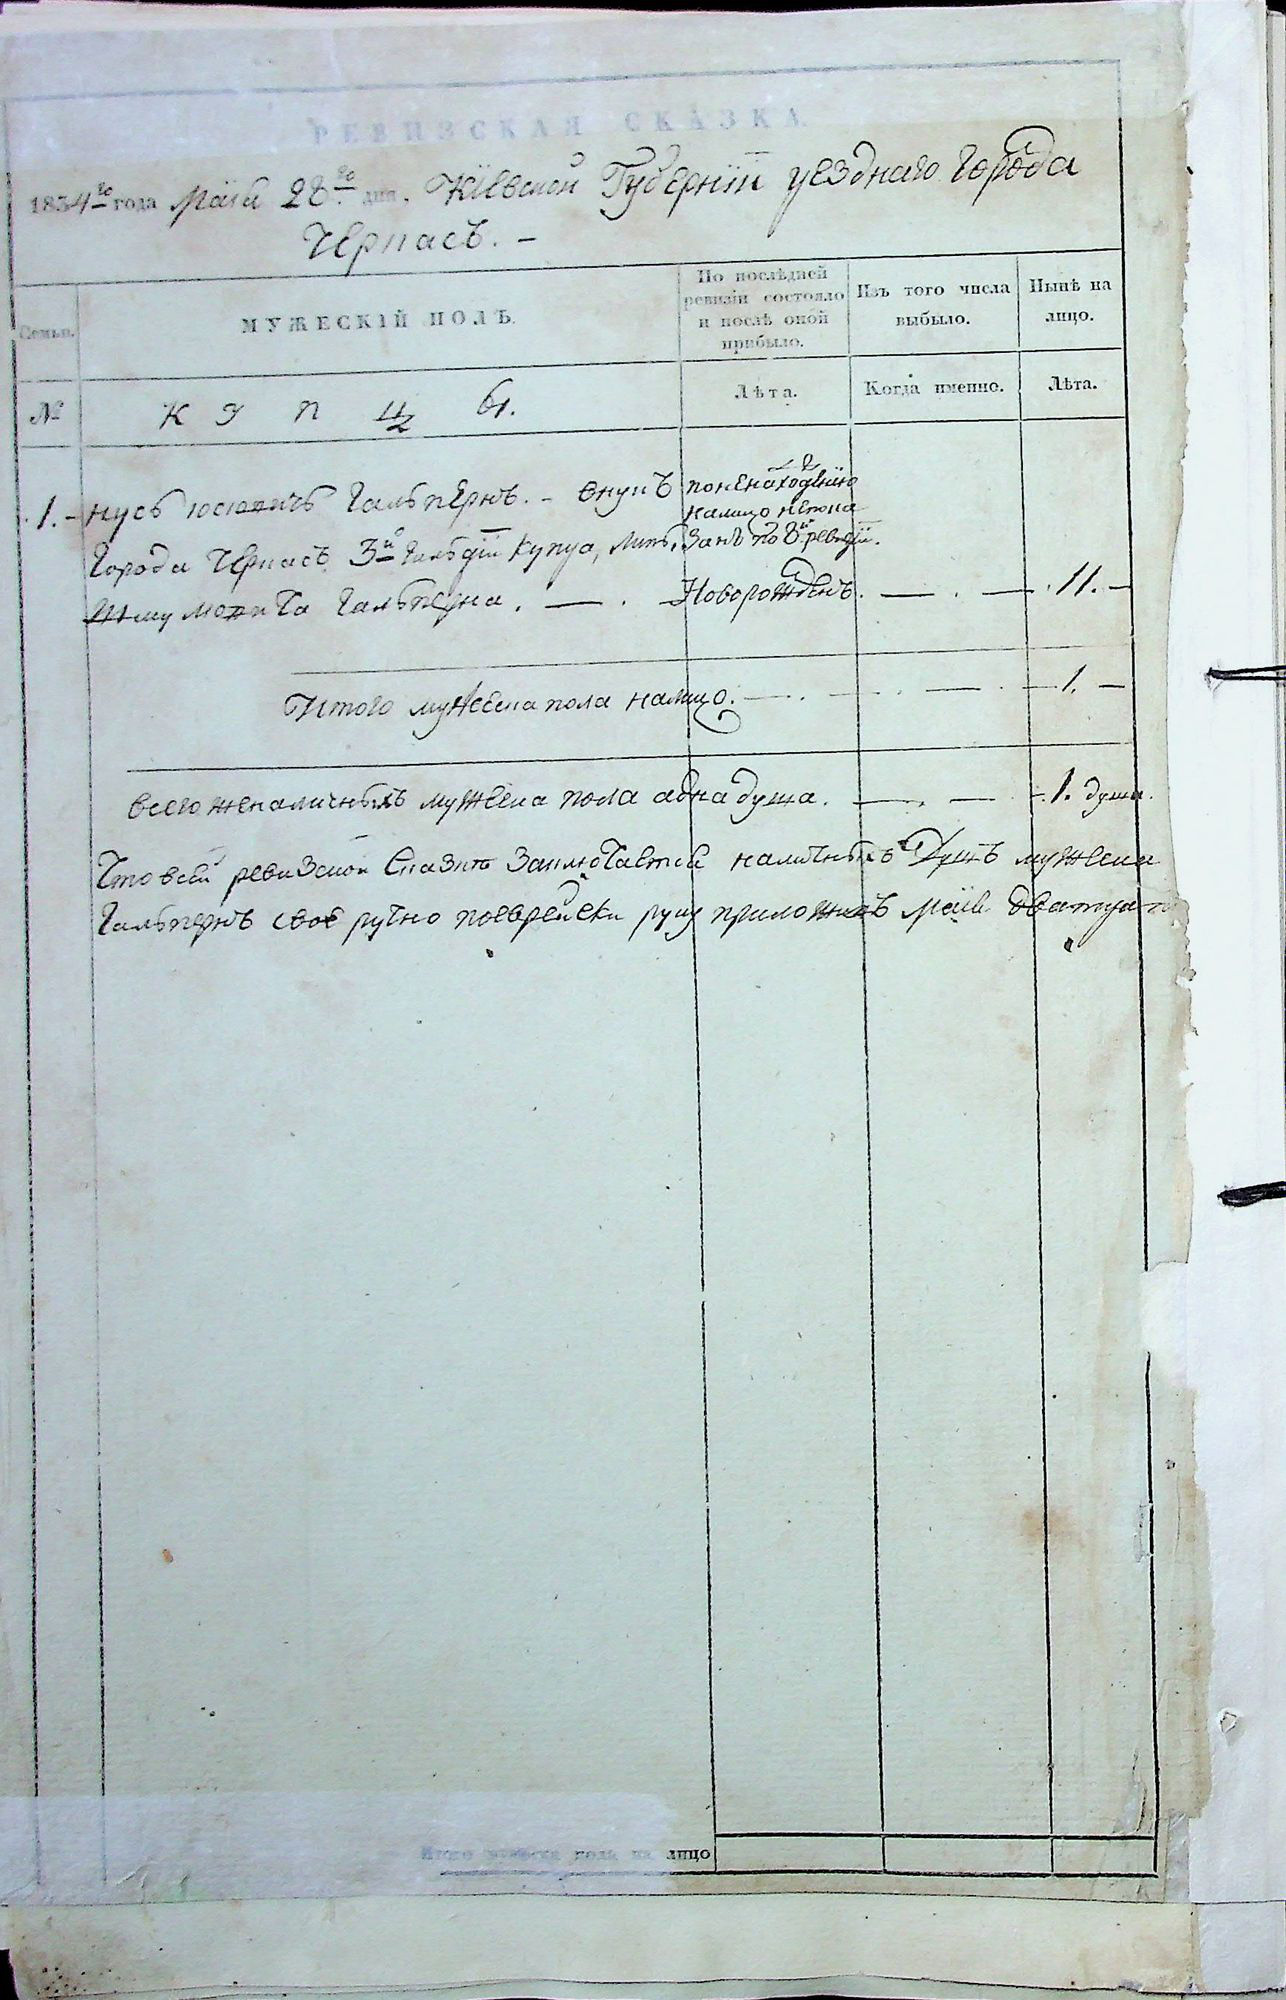 РЕВИЗСКАЯ СКАЗКА.
1834го года Маія 28го дня. Кіевской Губерніи уезднаго города
Черкасъ. –
Семьи.
МУЖЕСКІЙ ПОЛЪ.
По послѣдней ревизіи состояло и послѣ оной прибыло.
Изъ того числа выбыло.
Нынѣ на лицо.
№
К у п ц ы.
Лѣта.
Когда именно.
Лѣта.
1. – Гальпернъ. – внукъ
города Черкасъ 3й гильдіи купца,
Гальперна. – . –
поненахожденію
налицо непока
занъ по 8й ревизіи.
Новорожденъ. – . – . 11. –
Итого мужеска пола налицо. – . – . – . – 1. –
всего женаличныхъ мужеска пола адна душа. – . – . 1. душа.
Что всей ревизской сказке заключается наличныхъ душъ мужеска
Гальпернъ своеручно поеврейски руку приложилъ Маія дватца
Итого мужеска полу на лицо